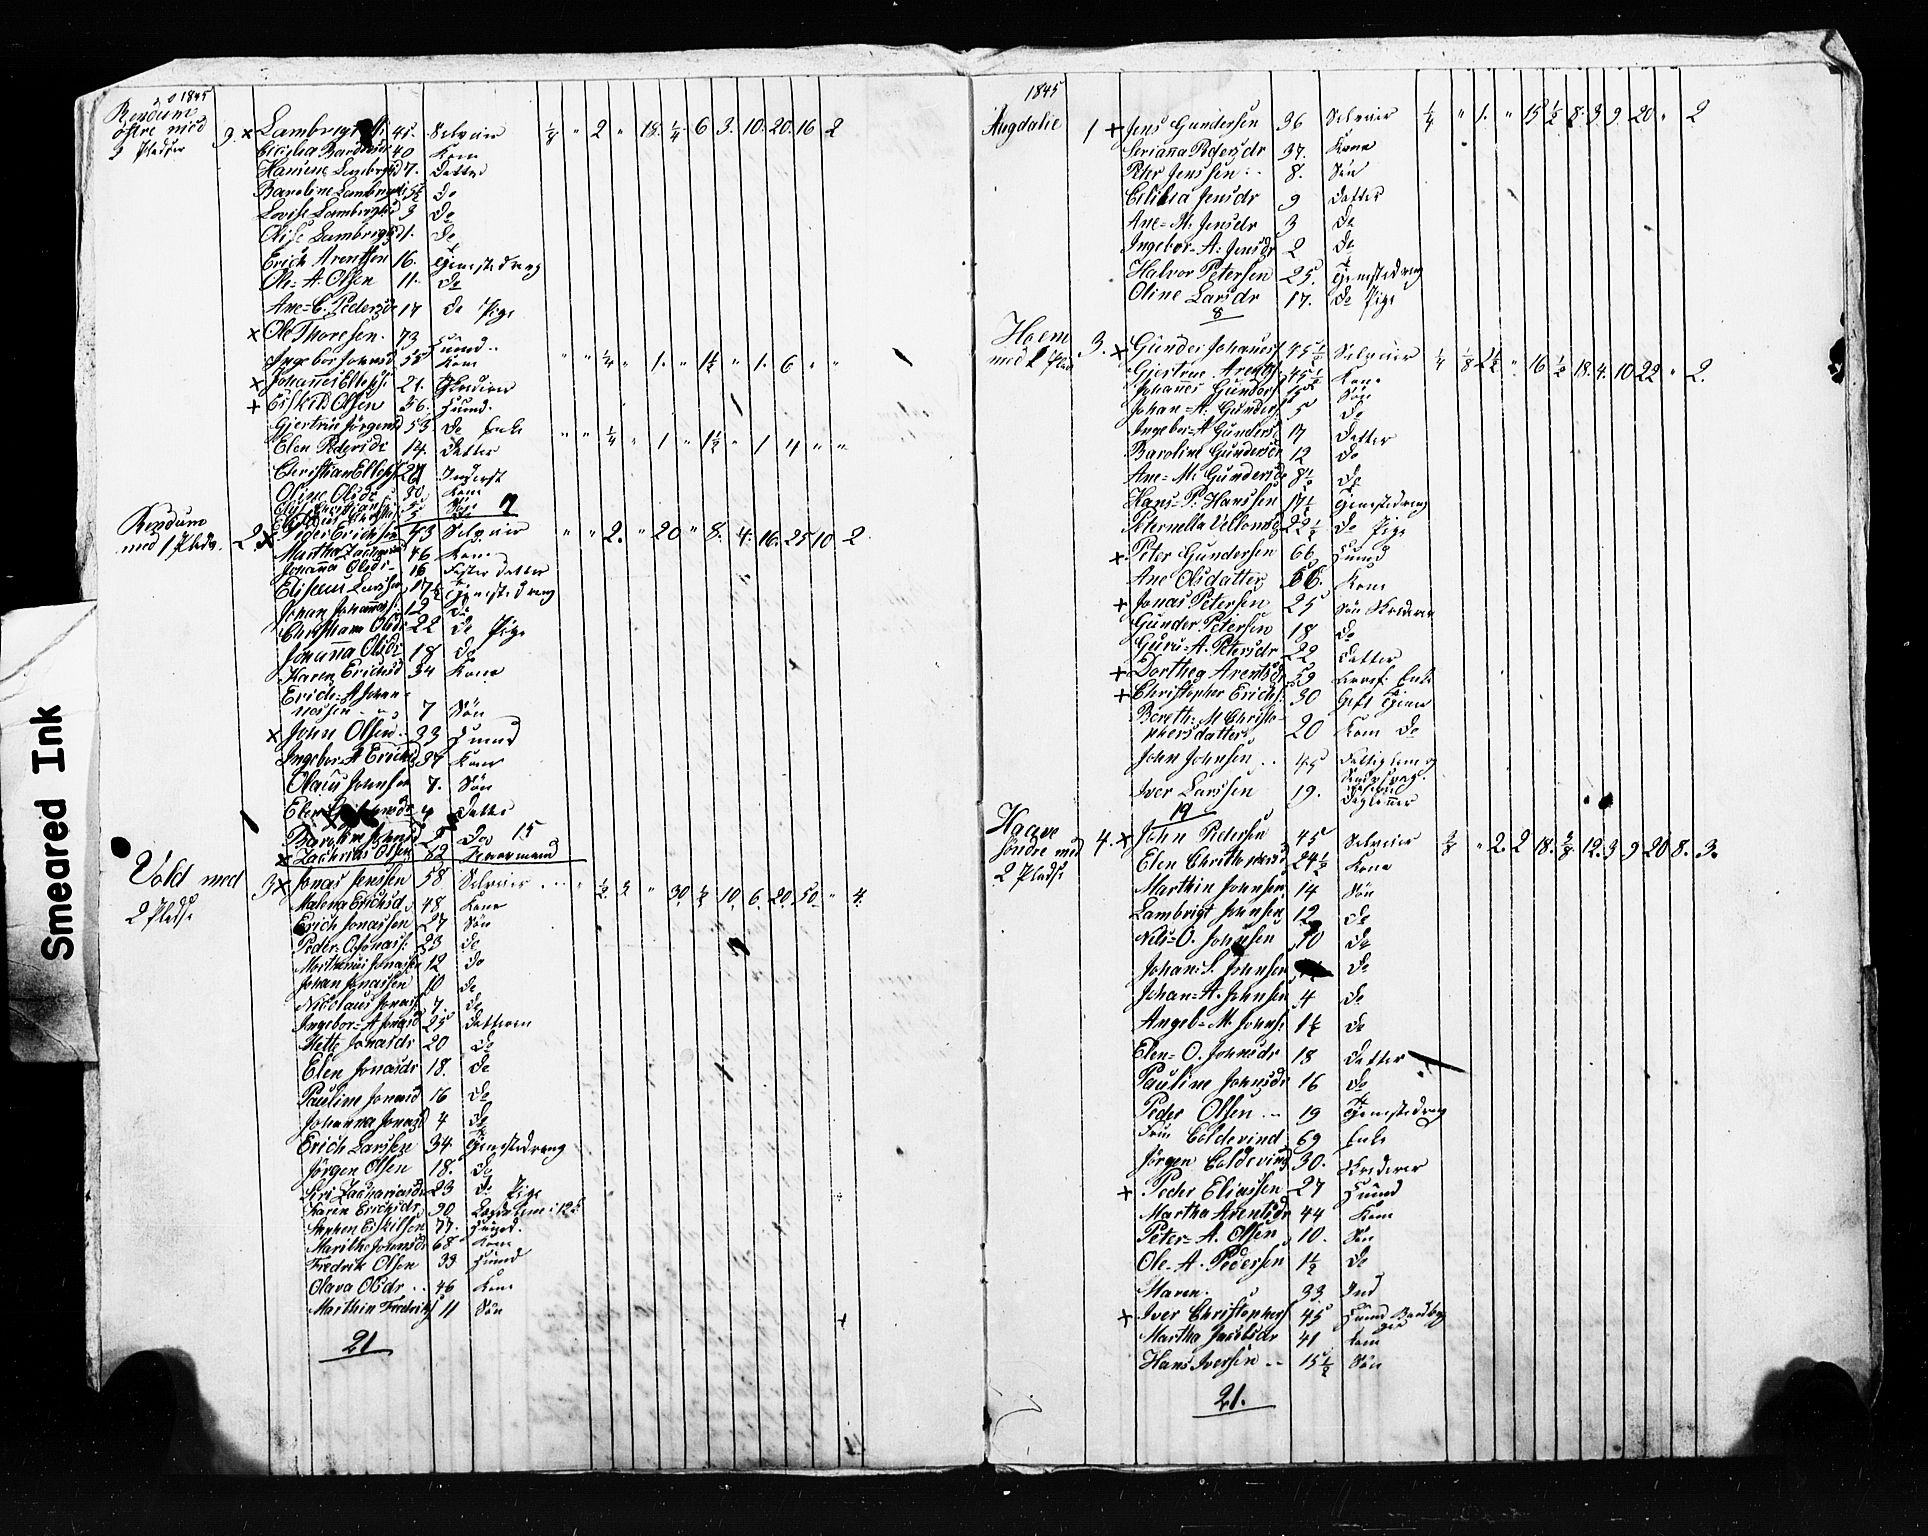 1845
Rendum
östre med
3 Pladser
3. × Lambrigt 45. Selveier ¼ " 2 " 18. ¼ 6 3. 10. 20. 16 2
40 Kone
Hanine Lambrigtsd 7. Datter
Baroline Lambrigtsd 5½ do
Lovise Lambrigtsd 3 do
Olise Lambrigtsd 1. do
Erich Arentsen 16. Tjenestedreng
Ole-A. Olsen 11. do
Ane-C. Pedersdr 17 do Pige
× Ole Thoresen. 73 Huusmd.
Ingebor Johnsd Kone " " ¼ " 1. " 1½ " 1. 6 " "
× Johannes 21.
+ Eskild Olsen 56. Huusmd.
Gjertrue Jörgensd 53 do Enke " " ¼ " 1 " 1½ " 1 4 " "
Elen Pedersdr 14. Datter
Christian Inderst
Oline Olsdr 30 Kone
Rendum
med 1 Plads. 2. × Peder Erichsen 43 Selveier " " 2. " 20 " 8. 4. 16. 25 10 2
Martha 46 Kone
Johanna Olsdr 16 Foster Datter
Eliseus Larssen 17½ Tjenestedreng
Johan Johanness. 12 do
Christiane Olsdr 22 do Pige
Johanna Olsdr 18 do
Karen Erichsd 34 Kone
Erich-A. Johan-
nessen 7 Sön
× John Olsen 33 Huusmd
Ingebor-A. Erichsd 37 Kone
Olaus Johnsen 7. Sön
Elen 4 Datter
Baroline Johnsd 2 do 15
× Zacharias Olsen 82
Vold med
2 Pladse
3 × Jonas Jenssen 58 Selveier " ½ 3 " 30. ½ 10. 6. 20. 50. " 4.
Malena Erichsd. 48 Kone
Erich Jonassen 27 Sön
Peder-O. Jonass. 23 do
Morthinus Jonassen 12 do
Johan Jonassen 10 do
Nicolaus Jonass. 7. do
Ingebor-A Jonasd 25 Datteren
Mette Jonasdr 20 do
Elen Jonasdr 18. do
Pauline Jonasd 16 do
Johanna Jonasd 4 do
Erich Larssen 34. Tjenestedreng
Jörgen Olsen 18. do
Siri Zachariasdr 23 do Pige
Karen Erichsdr 90
Stephen Eskildsen 77. Huusmd.
Marithe Johnsdr 68 Kone
Fredrik Olsen 33 Huusmd
Olava Olsdr 46 Kone
Marthin Fredriks. 11 Sön
21
1845
Augdalie 1 + Jens Gundersen 36 Selveier ¼ " 1. " 15 ½ 8. 3. 9. 20 " 2
Serianna Pedersdr 37. Kone
Peter Jenssen 8. Sön
Cicilia Jensdr 9 Datter
Ane-M. Jensdr 3 do
Ingebor-A. Jensdr 2 do
Halvor Petersen 25. Tjenestedreng
Oline Larsdr 17. do Pige
8
Holem
med 1 Plads 3. × Gunder Johanes. 45½ Selveier ¼ ⅛ 2½ " 16 ½ 18. 4. 10 22 " 2.
Gjertrue Arents. 45½ Kone
Johannes Gunders. 15 Sön
Johan-A. Gunders. 5 do
Ingebor-A Gundersd 17 Datter
Baroline Gundersd 12 do
Ane-M. Gundersd 8½ do
Hans-P. Hanssen 17½ Tjenestedreng
Peternella 22½ do Pige
+ Peter Gundersen 66 Huusmd
Ane Olsdatter 66. Kone
+ Jonas Petersen 25 Sön
Gunder Petersen 18 do
Guru-A. Petersdr 22 Datter
+ Dorthea Arentsd 59 Enke
+ Christopher Erichs. 30 Gift Tjener
Bereth-M Christo-
phersdatter 20 Kone do
John Johnsen 45
Iver Larssen 19. Daglönner
19
Haave
söndre med
2 Pladse
4. × John Pedersen 45 Selveier ⅜ " 2. 2 18. ⅜ 12. 3 9 20 8. 3.
Elen 24½ Kone
Marthin Johnsen 14 Sön
Lambrigt Johnsen 12 do
Nils-O. Johnsen 10 do
Johan-S. Johnsen do
Johan-A. Johnsen 4 do
Angel-M. Johns. 1½ do
Elen-O. Johnsdr 18 Datter
Pauline Johnsdr 16 do
Peder Olsen 19 Tjenestedreng
Fru Coldevind 69 Enke
Jörgen Coldevind 30.
+ Peder Eliassen 27 Huusmd
Martha Arentsdr 44 Kone
Peter-A. Olsen 10. Sön
Ole-A. Pedersen 1½ do
Maren. 33. Ind
+ Iver Christophers. 45 Huusmd
Martha Jacobsdr 41 Kone
Hans Iversen 15½ Sön
21.
Smeared Ink